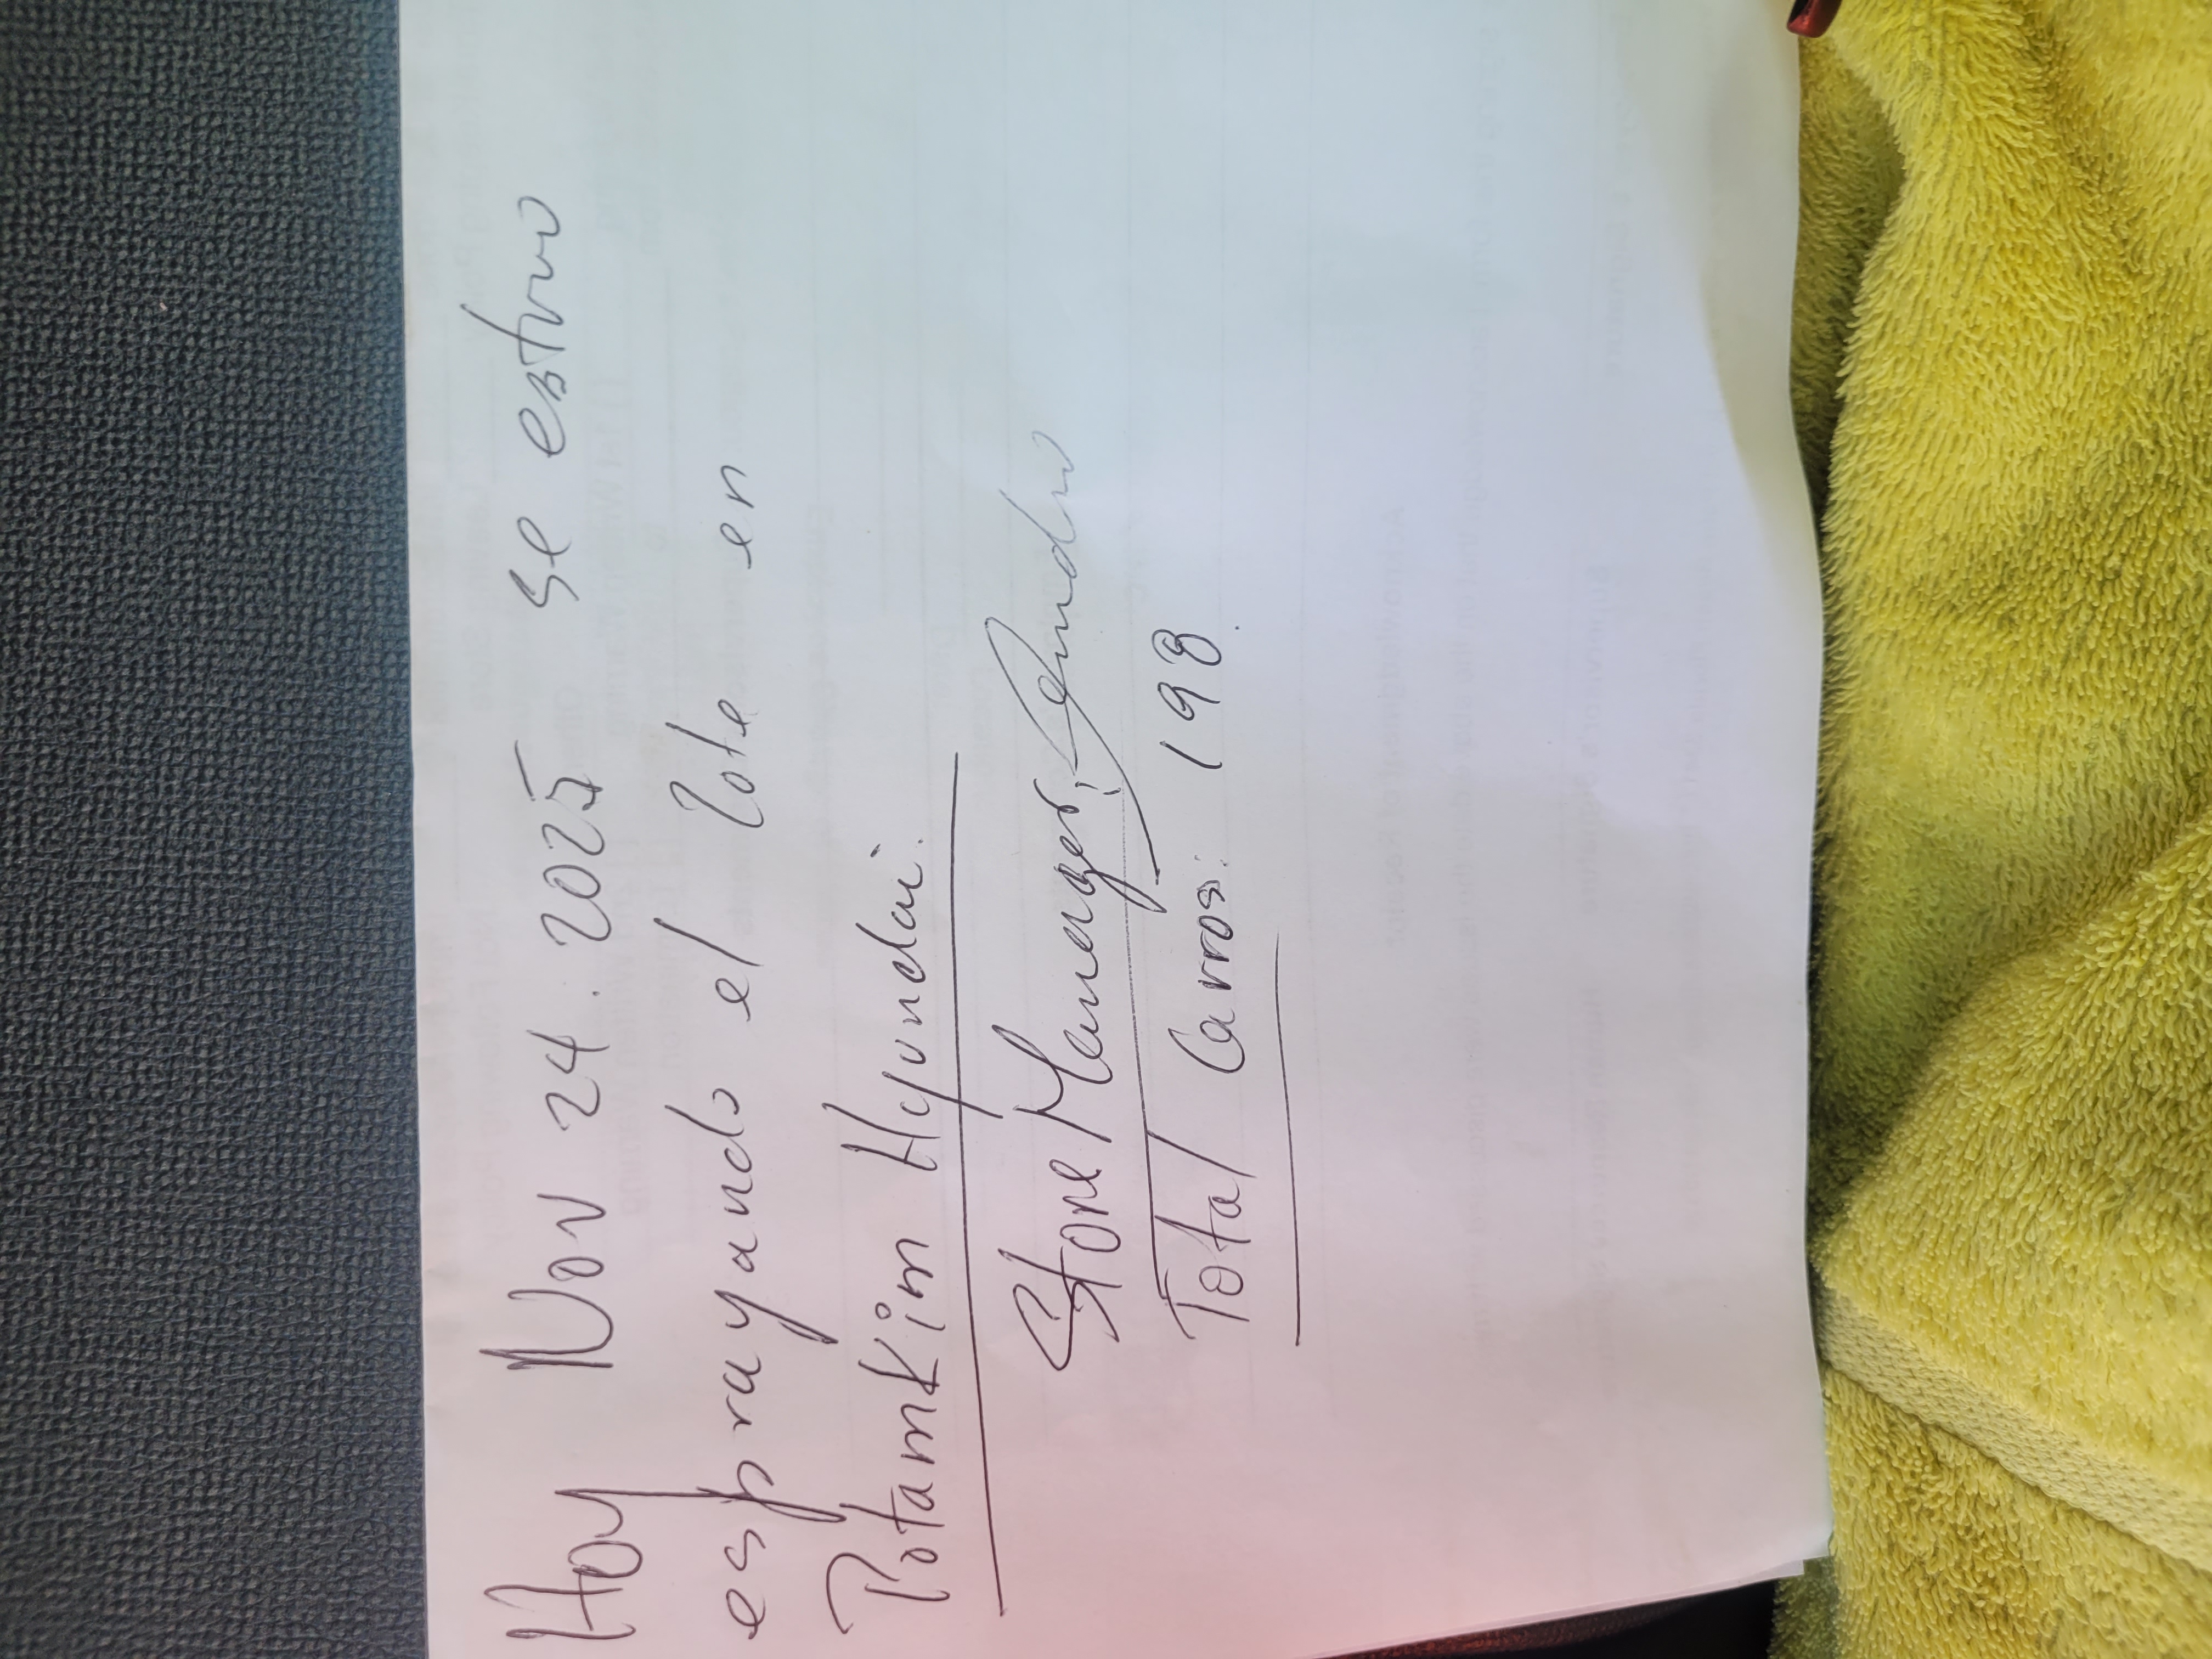 Hoy Nov 24. 2025 se estuvo
esprayando el lote en
Potamkim Hyundai.
Store Maneger:
Total Carros: 198.